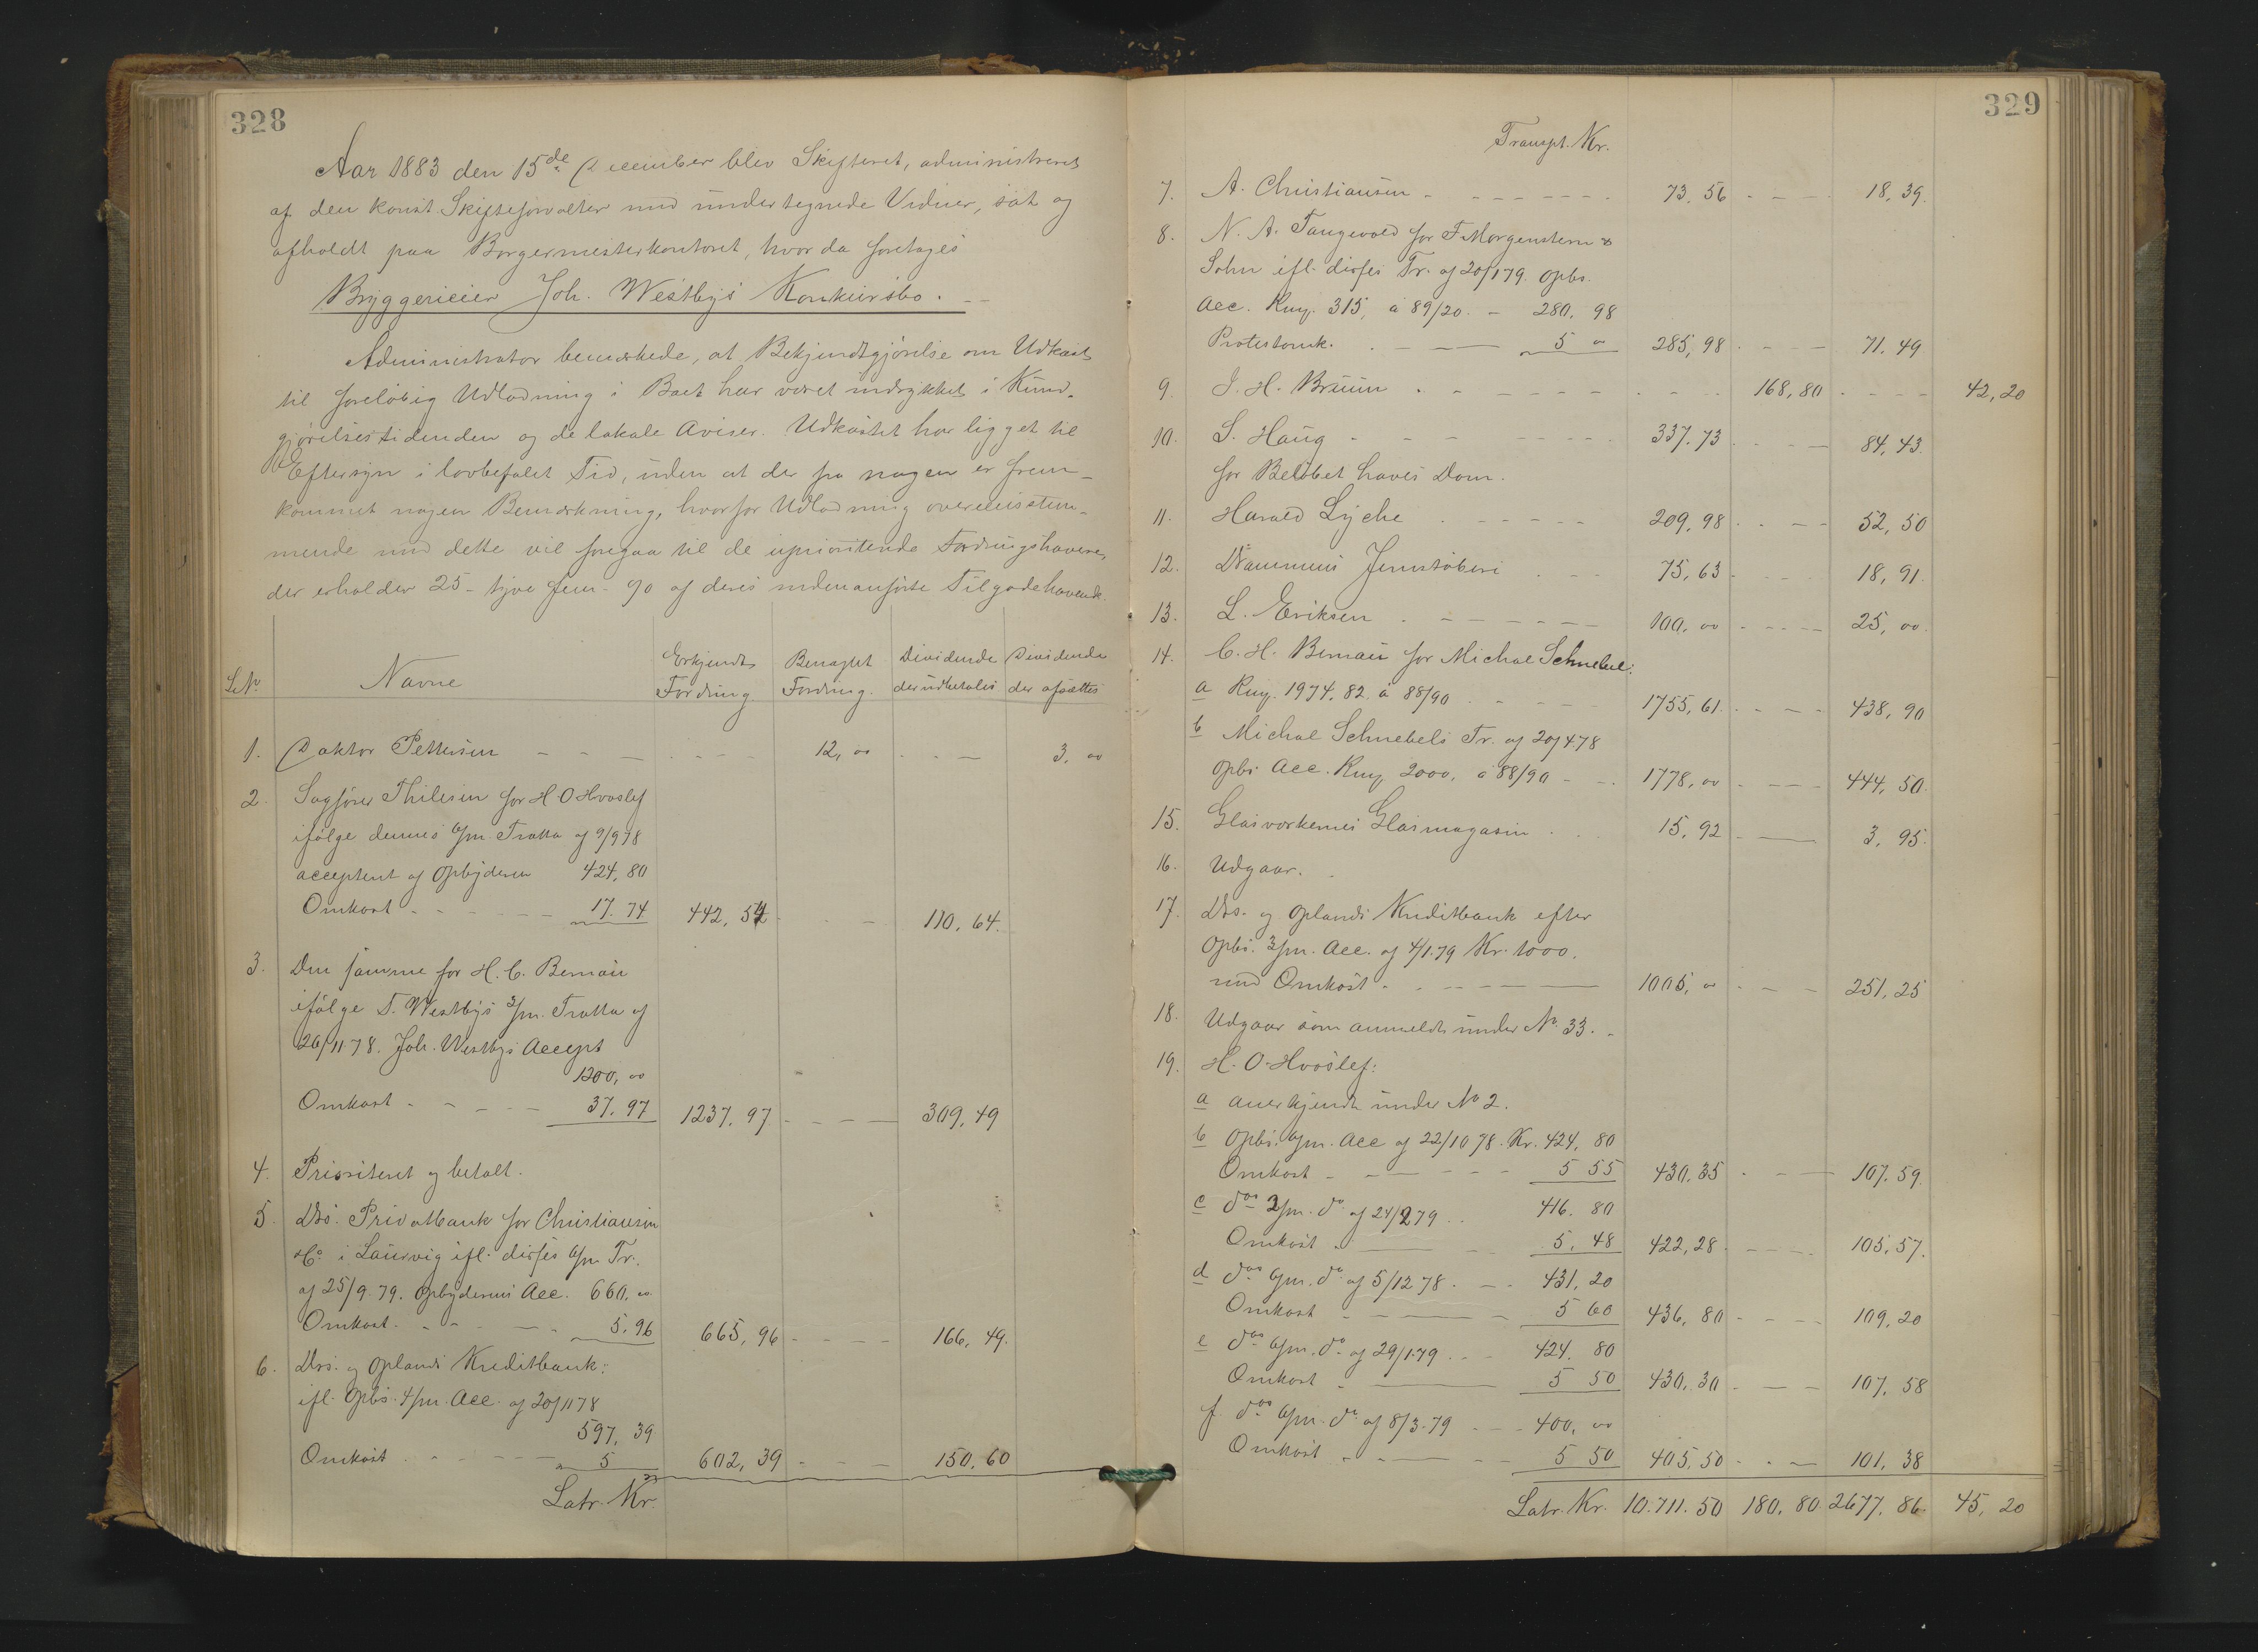 328
Aar 1883 den 15de December blev Skifteret, administreret
af den konst. Skifteforvalter med undertegnede Vidner, sat og
afholdt paa Borgermesterkontoret, hvor da foretoges
Bryggerieier Joh. Westbys Konkursbo.
Administrator bemærkede, at Bekjendtgjørelse om Udkast
til foreløbig Udlodning i Boet har været indrykket i Kund-
gjørelsestidenden og de lokale Aviser. Udkastet har ligget til
Eftersyn i lovbefalet Tid, uden at der fra nogen er frem-
kommet nogen Bemærkning, hvorfor Udlodning overensstem-
mende med dette vil foregaa til de uprioriterede Fordringshavere,
der erholder 25 - tyve fem - % af deres nedenanførte Tilgodehavende.
L.No. Navne Erkjendt Fordring Benegtet Fordring. Dividende der udbetales Dividende der afsættes
1. Doktor Pettersen 12, 00 3, 00
2. Sagfører Thilesen for H. O. Hvoslef
ifølge dennes 6/m. Tratta af 9/9 78
accepteret af Opbyderen 424, 80
Omkost 17. 74 442, 54 110. 64.
3. Den samme for H. C. Bernau
ifølge T. Westbys 3/m. Tratta af
26/11 78. Joh. Westbys Accept
1200, 00
Omkost 37. 97 1237. 97 309, 49
4. Prioriteret og betalt.
5. Drs. Privatbank for Christiansen
& Co i Laurvig ifl. disses 6/m Tr.
af 25/9. 79. Opbyderens Acc. 660. 00
Omkost. 5. 96 665, 96 166, 49.
6. Drs. og Oplands Kreditbank:
ifl. Opbs. 4/m. Acc. af 20/11 78
597, 39
Omkost 5 602, 39 150, 60
Latr. Kr.
329
Transpt. Kr.
7. A. Christiansen 73, 56 18, 39.
8. N. A. Tangevald for F. Morgenstern &
Sohn ifl. disses Tr. af 20/1 79. Opbs.
Acc. Rmg. 315, à 89/20. - 280, 98
Protestomk. 5 00 285, 98 71. 49
9. J. H. Bruun 168, 80 42, 20
10. S. Haug 337. 73 84, 43.
for Beløbet haves Dom.
11. Harald Lyche 209, 98 52, 50
12. Drammens Jernstøberi 75, 63 18, 91.
13. L. Eriksen 100, 00 25, 00
14. C. H. Bernau for Michael Schnebel:
a Rmg. 1974, 82. à 88/90 1755, 61. 438, 90
b Michael Schnebels Tr. af 20/4.78
Opbs Acc. Rmg. 2000, à 88/90 1778, 00 444, 50.
15. Glasværkernes Glasmagasin 15, 92 3, 95.
16. Udgaar.
17. Drs. og Oplands Kreditbank efter
Opbs. 3/m. Acc. af 4/1.79 Kr. 1000,
med Omkost 1005, 00 251, 25
18. Udgaar som anmeldt under No. 33.
19. H. O. Hvoslef:
a anerkjendt under No 2.
b Opbs. 6/m. Acc af 22/10 78. Kr. 424, 80
Omkost 5 55 430. 35 107. 59.
c do 3/m. do af 24/2 79 416. 80
Omkost 5, 48 422, 28. 105, 57.
d do 6/m. do af 5/12 78. 431, 20
Omkost 5 60 436, 80 109, 20
e do 6/m. do af 29/1.79 424. 80
Omkost 5 50 430, 30 107, 58
f. do 6/m. do af 8/3.79 400, 00
Omkost 5 50 405, 50 101, 38
Latr. Kr. 10.711. 50 180, 80. 2677, 86. 45, 20